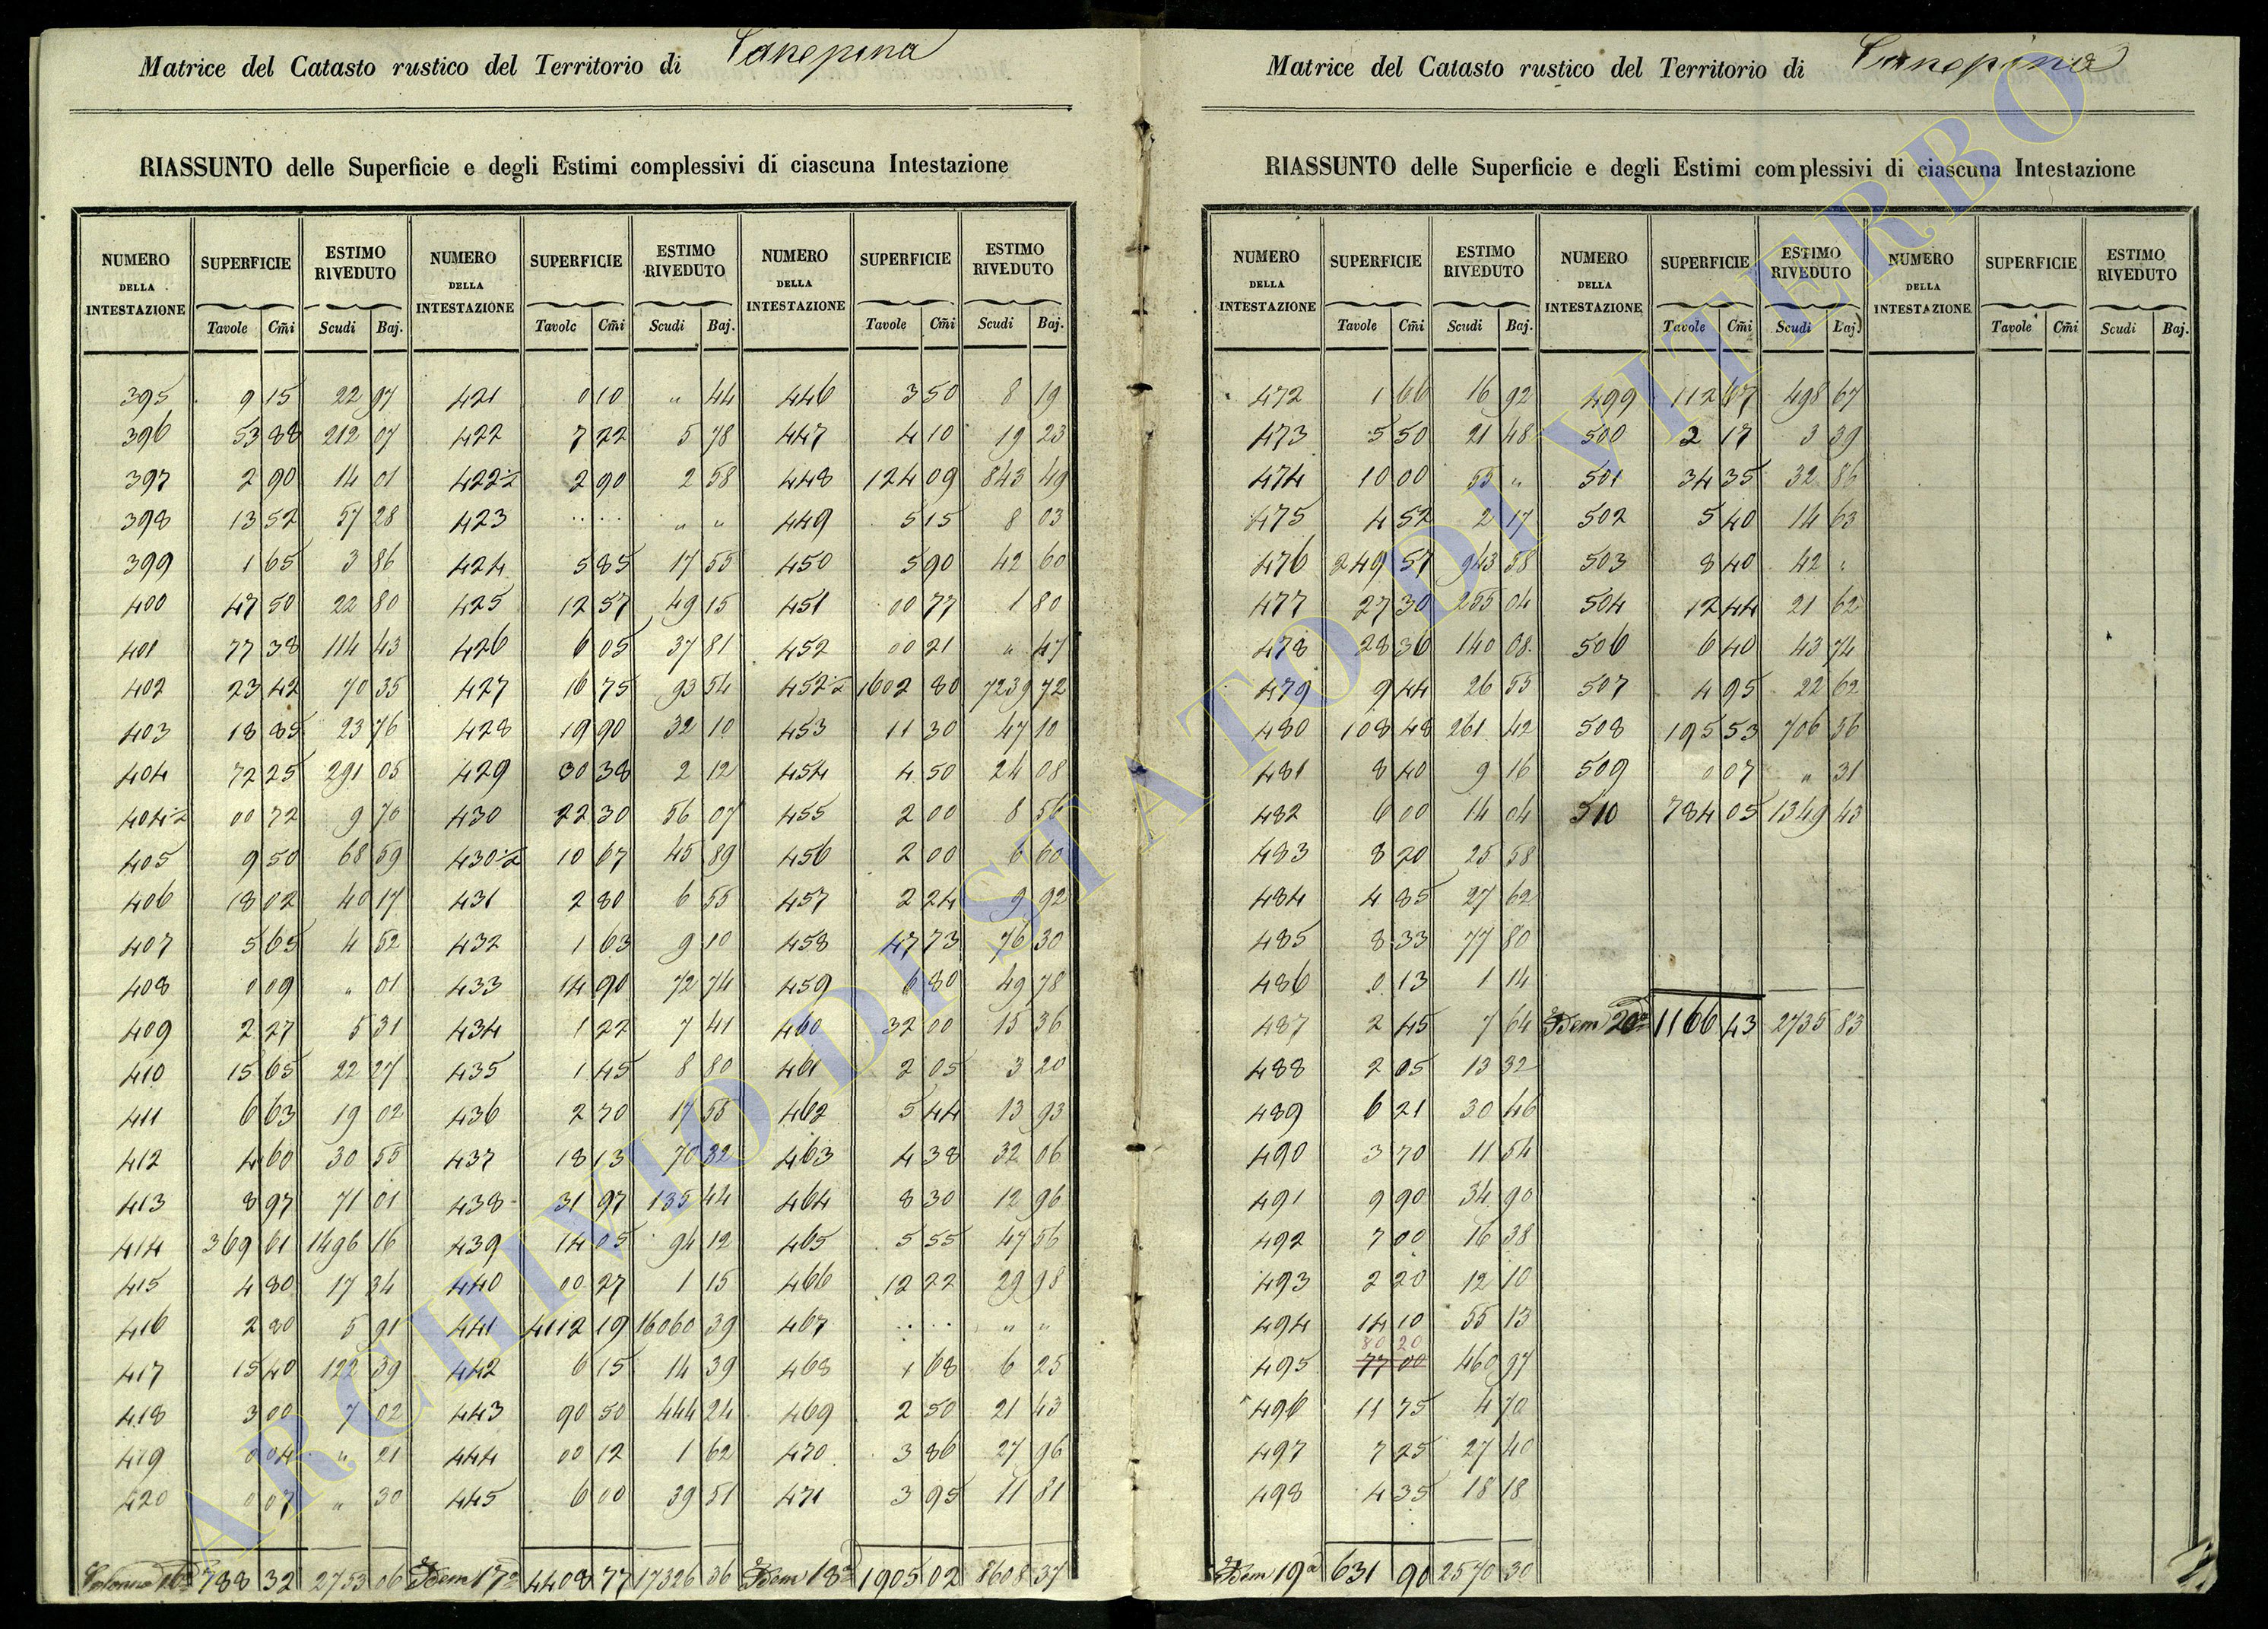 Matrice del Catasto rustico del Territorio di Canepina
RIASSUNTO delle Superficie e degli Estimi complessivi di ciascuna Intestazione
NUMERO DELLA INTESTAZIONE SUPERFICIE ESTIMO RIVEDUTO NUMERO DELLA INTESTAZIONE SUPERFICIE ESTIMO RIVEDUTO NUMERO DELLA INTESTAZIONE SUPERFICIE ESTIMO RIVEDUTO
Tavole Cmi Scudi Baj. Tavole Cmi Scudi Baj. Tavole Cmi Scudi Baj.
395 9 15 22 97 421 0 10 " 44 446 3 50 8 19
396 53 88 212 07 422 7 22 5 78 447 4 10 19 23
397 2 90 14 01 422½ 2 90 2 58 448 124 09 843 49
398 13 52 57 28 423 .. .. " " 449 5 15 8 03
399 1 65 3 86 424 5 85 17 55 450 5 90 42 60
400 47 50 22 80 425 12 57 49 15 451 00 77 1 80
401 77 38 114 43 426 6 05 37 81 452 00 21 " 47
402 23 42 70 35 427 16 75 93 54 452½ 1602 80 7239 72
403 18 85 23 76 428 19 90 32 10 453 11 30 47 10
404 72 25 291 05 429 30 38 2 12 454 4 50 24 08
404½ 00 72 9 70 430 22 30 56 07 455 2 00 8 56
405 9 50 68 59 430½ 10 67 45 89 456 2 00 6 60
406 18 02 40 17 431 2 80 6 55 457 2 24 9 92
407 5 65 4 52 432 1 63 9 10 458 47 73 76 30
408 0 09 " 01 433 14 90 72 74 459 6 80 49 78
409 2 27 5 31 434 1 22 7 41 460 32 00 15 36
410 15 65 22 27 435 1 45 8 80 461 2 05 3 20
411 6 63 19 02 436 2 70 17 55 462 5 44 13 93
412 4 60 30 55 437 18 13 70 32 463 4 38 32 06
413 8 97 71 01 438 31 97 135 44 464 8 30 12 96
414 369 61 1496 16 439 14 05 94 12 465 5 55 47 56
415 4 80 17 34 440 00 27 1 15 466 12 22 29 98
416 2 80 5 91 441 4112 19 16060 39 467 .. .. " "
417 15 40 122 39 442 6 15 14 39 468 1 68 6 25
418 3 00 7 02 443 90 50 444 24 469 2 50 21 43
419 0 04 " 21 444 00 12 1 62 470 3 86 27 96
420 0 07 " 30 445 6 00 39 51 471 3 95 11 81
Colonna 16a 788 32 2753 06 Idem 17a 4408 77 17326 36 Idem 18a 1905 02 8608 37
Matrice del Catasto rustico del Territorio di Canepina
RIASSUNTO delle Superficie e degli Estimi complessivi di ciascuna Intestazione
NUMERO DELLA INTESTAZIONE SUPERFICIE ESTIMO RIVEDUTO NUMERO DELLA INTESTAZIONE SUPERFICIE ESTIMO RIVEDUTO NUMERO DELLA INTESTAZIONE SUPERFICIE ESTIMO RIVEDUTO
Tavole Cmi Scudi Baj. Tavole Cmi Scudi Baj. Tavole Cmi Scudi Baj.
472 1 66 16 92 499 112 67 498 67
473 5 50 21 48 500 2 17 3 39
474 10 00 55 " 501 34 35 32 86
475 4 52 2 17 502 5 40 14 63
476 249 57 943 58 503 8 40 42 "
477 27 30 255 04 504 12 44 21 62
478 28 36 140 08 506 6 40 43 74
479 9 44 26 55 507 4 95 22 62
480 108 48 261 42 508 195 53 706 56
481 8 40 9 16 509 0 07 " 31
482 6 00 14 04 510 784 05 1349 43
483 8 20 25 58
484 4 85 27 62
485 8 33 77 80
486 0 13 1 14
487 2 45 7 64 Idem 20a 1166 43 2735 83
488 2 05 13 32
489 6 21 30 46
490 3 70 11 54
491 9 90 34 90
492 7 00 16 38
493 2 20 12 10
494 14 10 55 13
80 20
495 77 00 460 97
496 11 75 4 70
497 7 25 27 40
498 4 35 18 18
Idem 19a 631 90 2570 30
ARCHIVIO DI STATO DI VITERBO